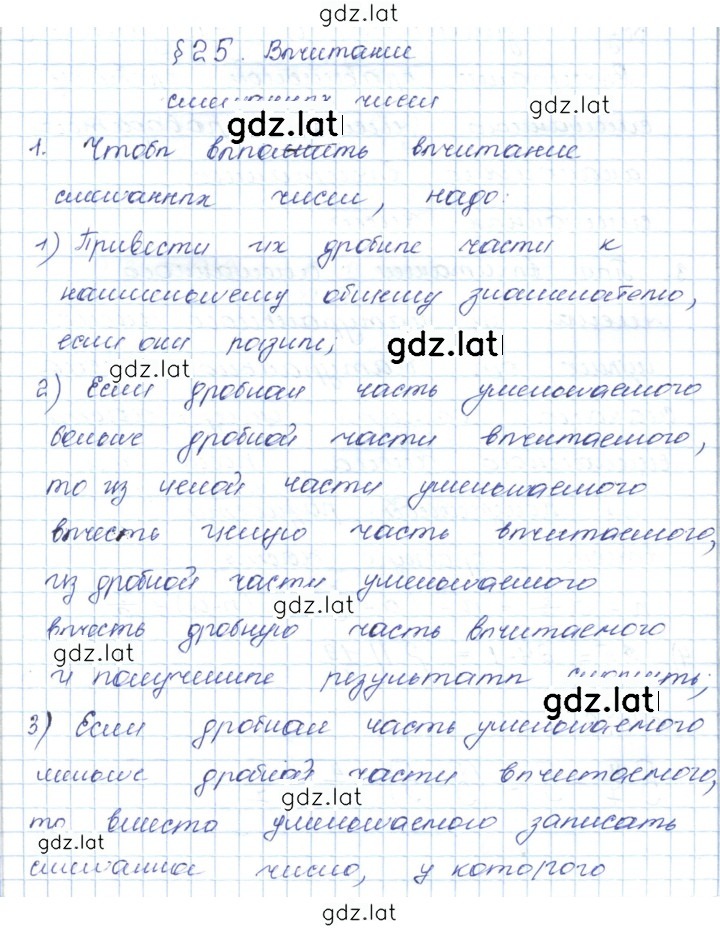 gdz.lat
§ 25. Вычитание
смешанных чисел
gdz.lat
gdz.lat
1. Чтобы выполнить вычитание
смешанных чисел, надо:
1) Привести их дробные части к
наименьшему общему знаменателю,
если они разные;
gdz.lat
gdz.lat
2) Если дробная часть уменьшаемого
больше дробной части вычитаемого,
то из целой части уменьшаемого
вычесть целую часть вычитаемого,
из дробной части уменьшаемого
gdz.lat
вычесть дробную часть вычитаемого
gdz.lat
и полученные результаты сложить;
gdz.lat
3) Если дробная часть уменьшаемого
меньше дробной части вычитаемого,
gdz.lat
то вместо уменьшаемого записать
gdz.lat
смешанное число, у которого
gdz.lat